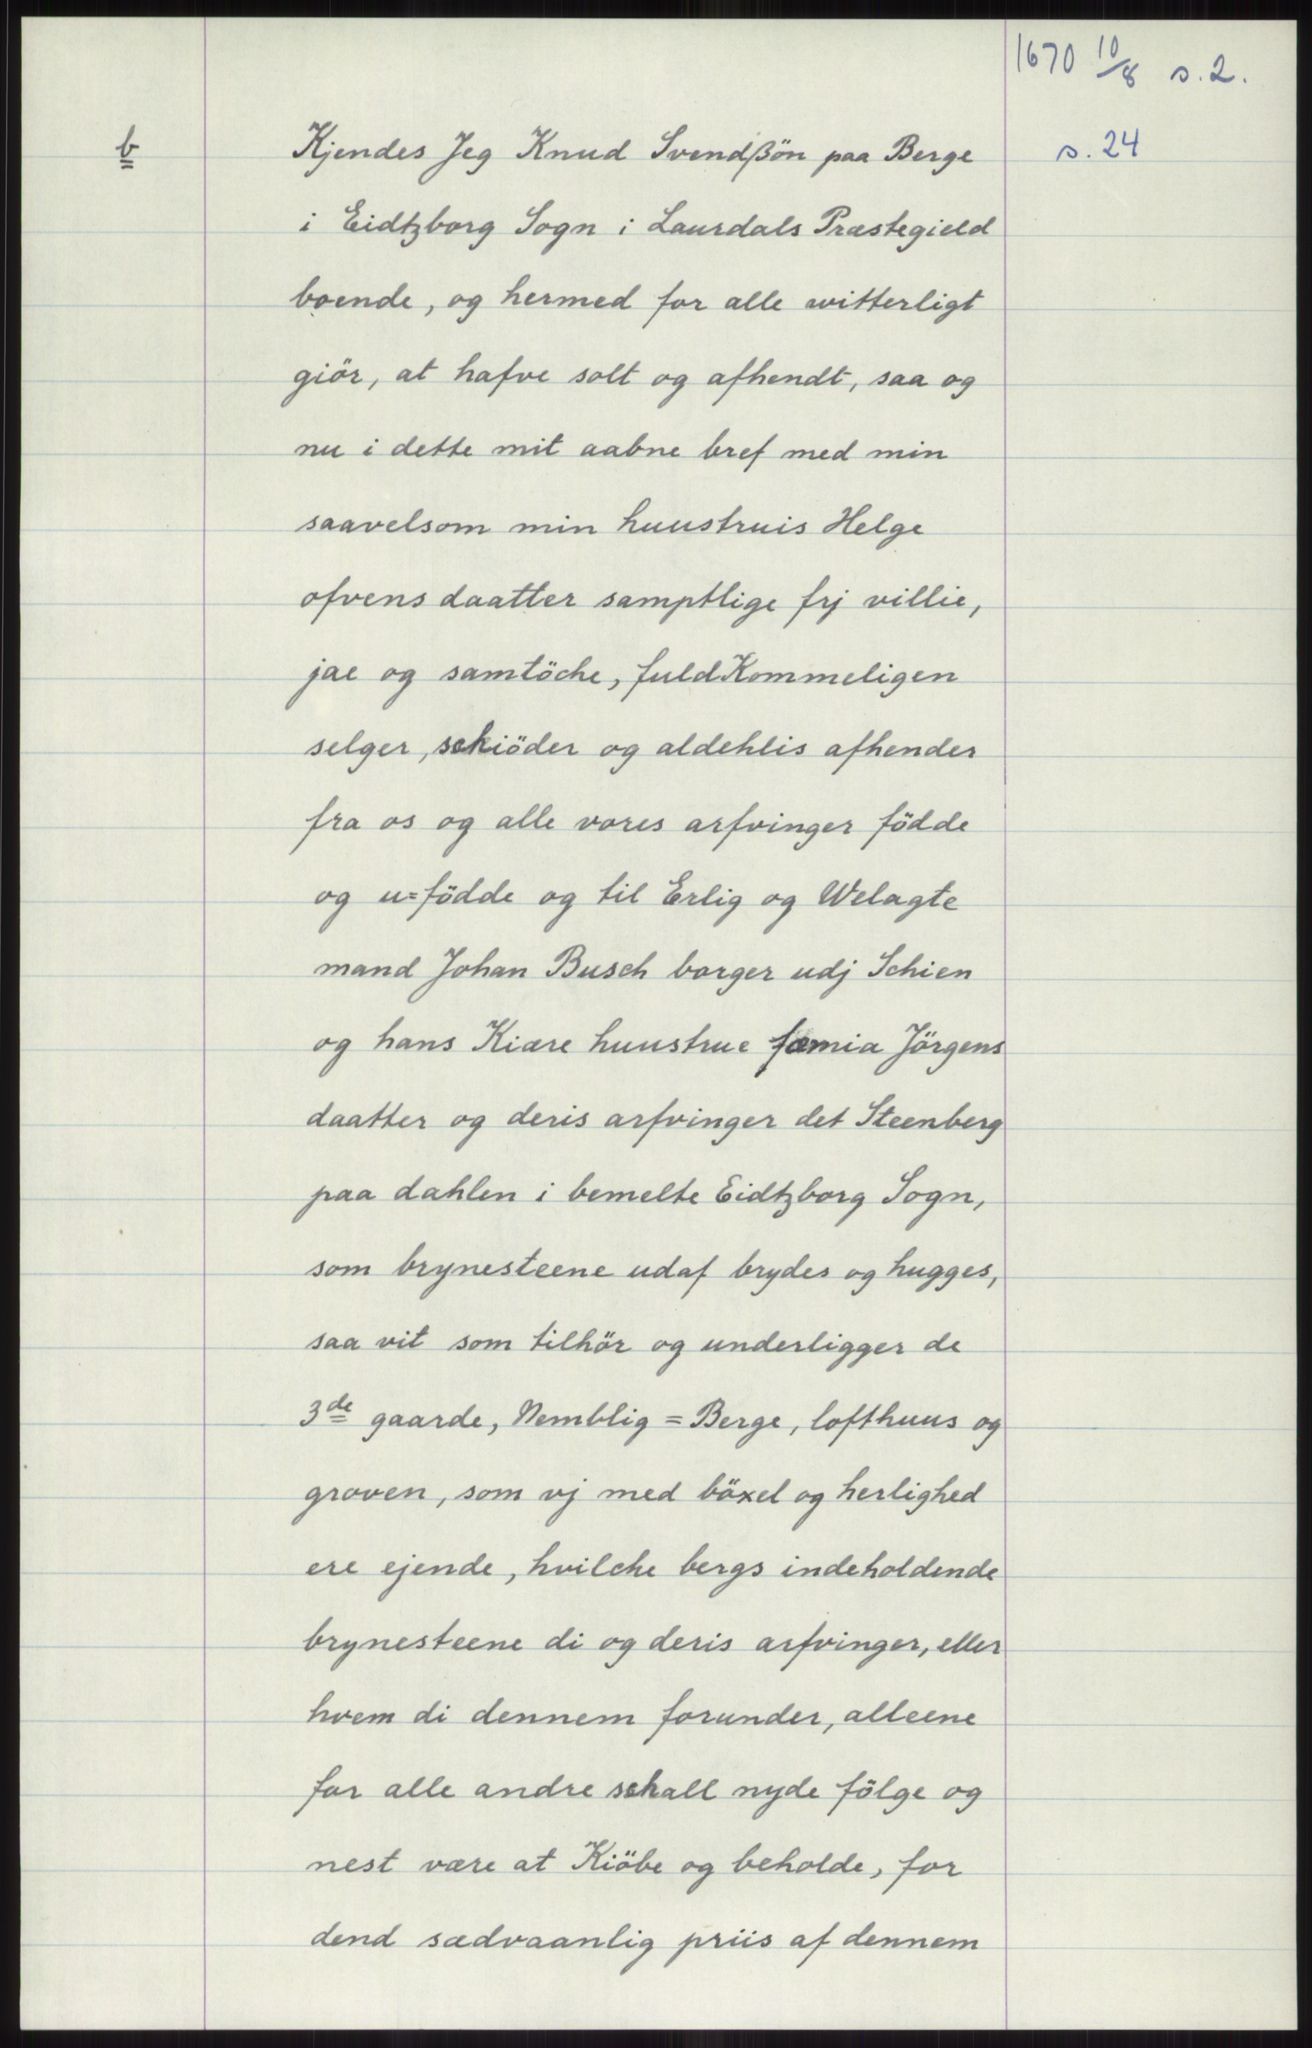 1670 10/8 s. 2.
b
s. 24
Kjendes Jeg Knud Svendßön paa Berge
i Eidtzborg Sogn i Laurdals Præstegield
boende, og hermed for alle witterligt
giör, at hafve solt og afhendt, saa og
nu i dette mit aabne bref med min
saavelsom min huustruis Helge
ofvensdaatter samptlige frj villie,
jae og samtöche, fuldKommeligen
selger, schiöder og aldehlis afhender
fra os og alle vores arfvinger födde
og u=födde og til Erlig og Welagte
mand Johan Busch borger udj Schien
og hans Kiære huustrue fæmia Jörgens
daatter og deris arfvinger det Steenberg
paa dahlen i bemelte Eidtzborg Sogn,
som brynesteene udaf brydes og hugges,
saa vit som tilhör og underligger de
3de gaarde, Nemblig = Berge, lofthuus og
groven, som vj med böxel og herlighed
ere ejende, hvilche bergs indeholdende
brynesteene di og deris arfvinger, eller
hvem di dennem forunder, alleene
for alle andre schall nyde fölge og
nest være at Kiöbe og beholde, for
dend sædvaanlig priis af dennem